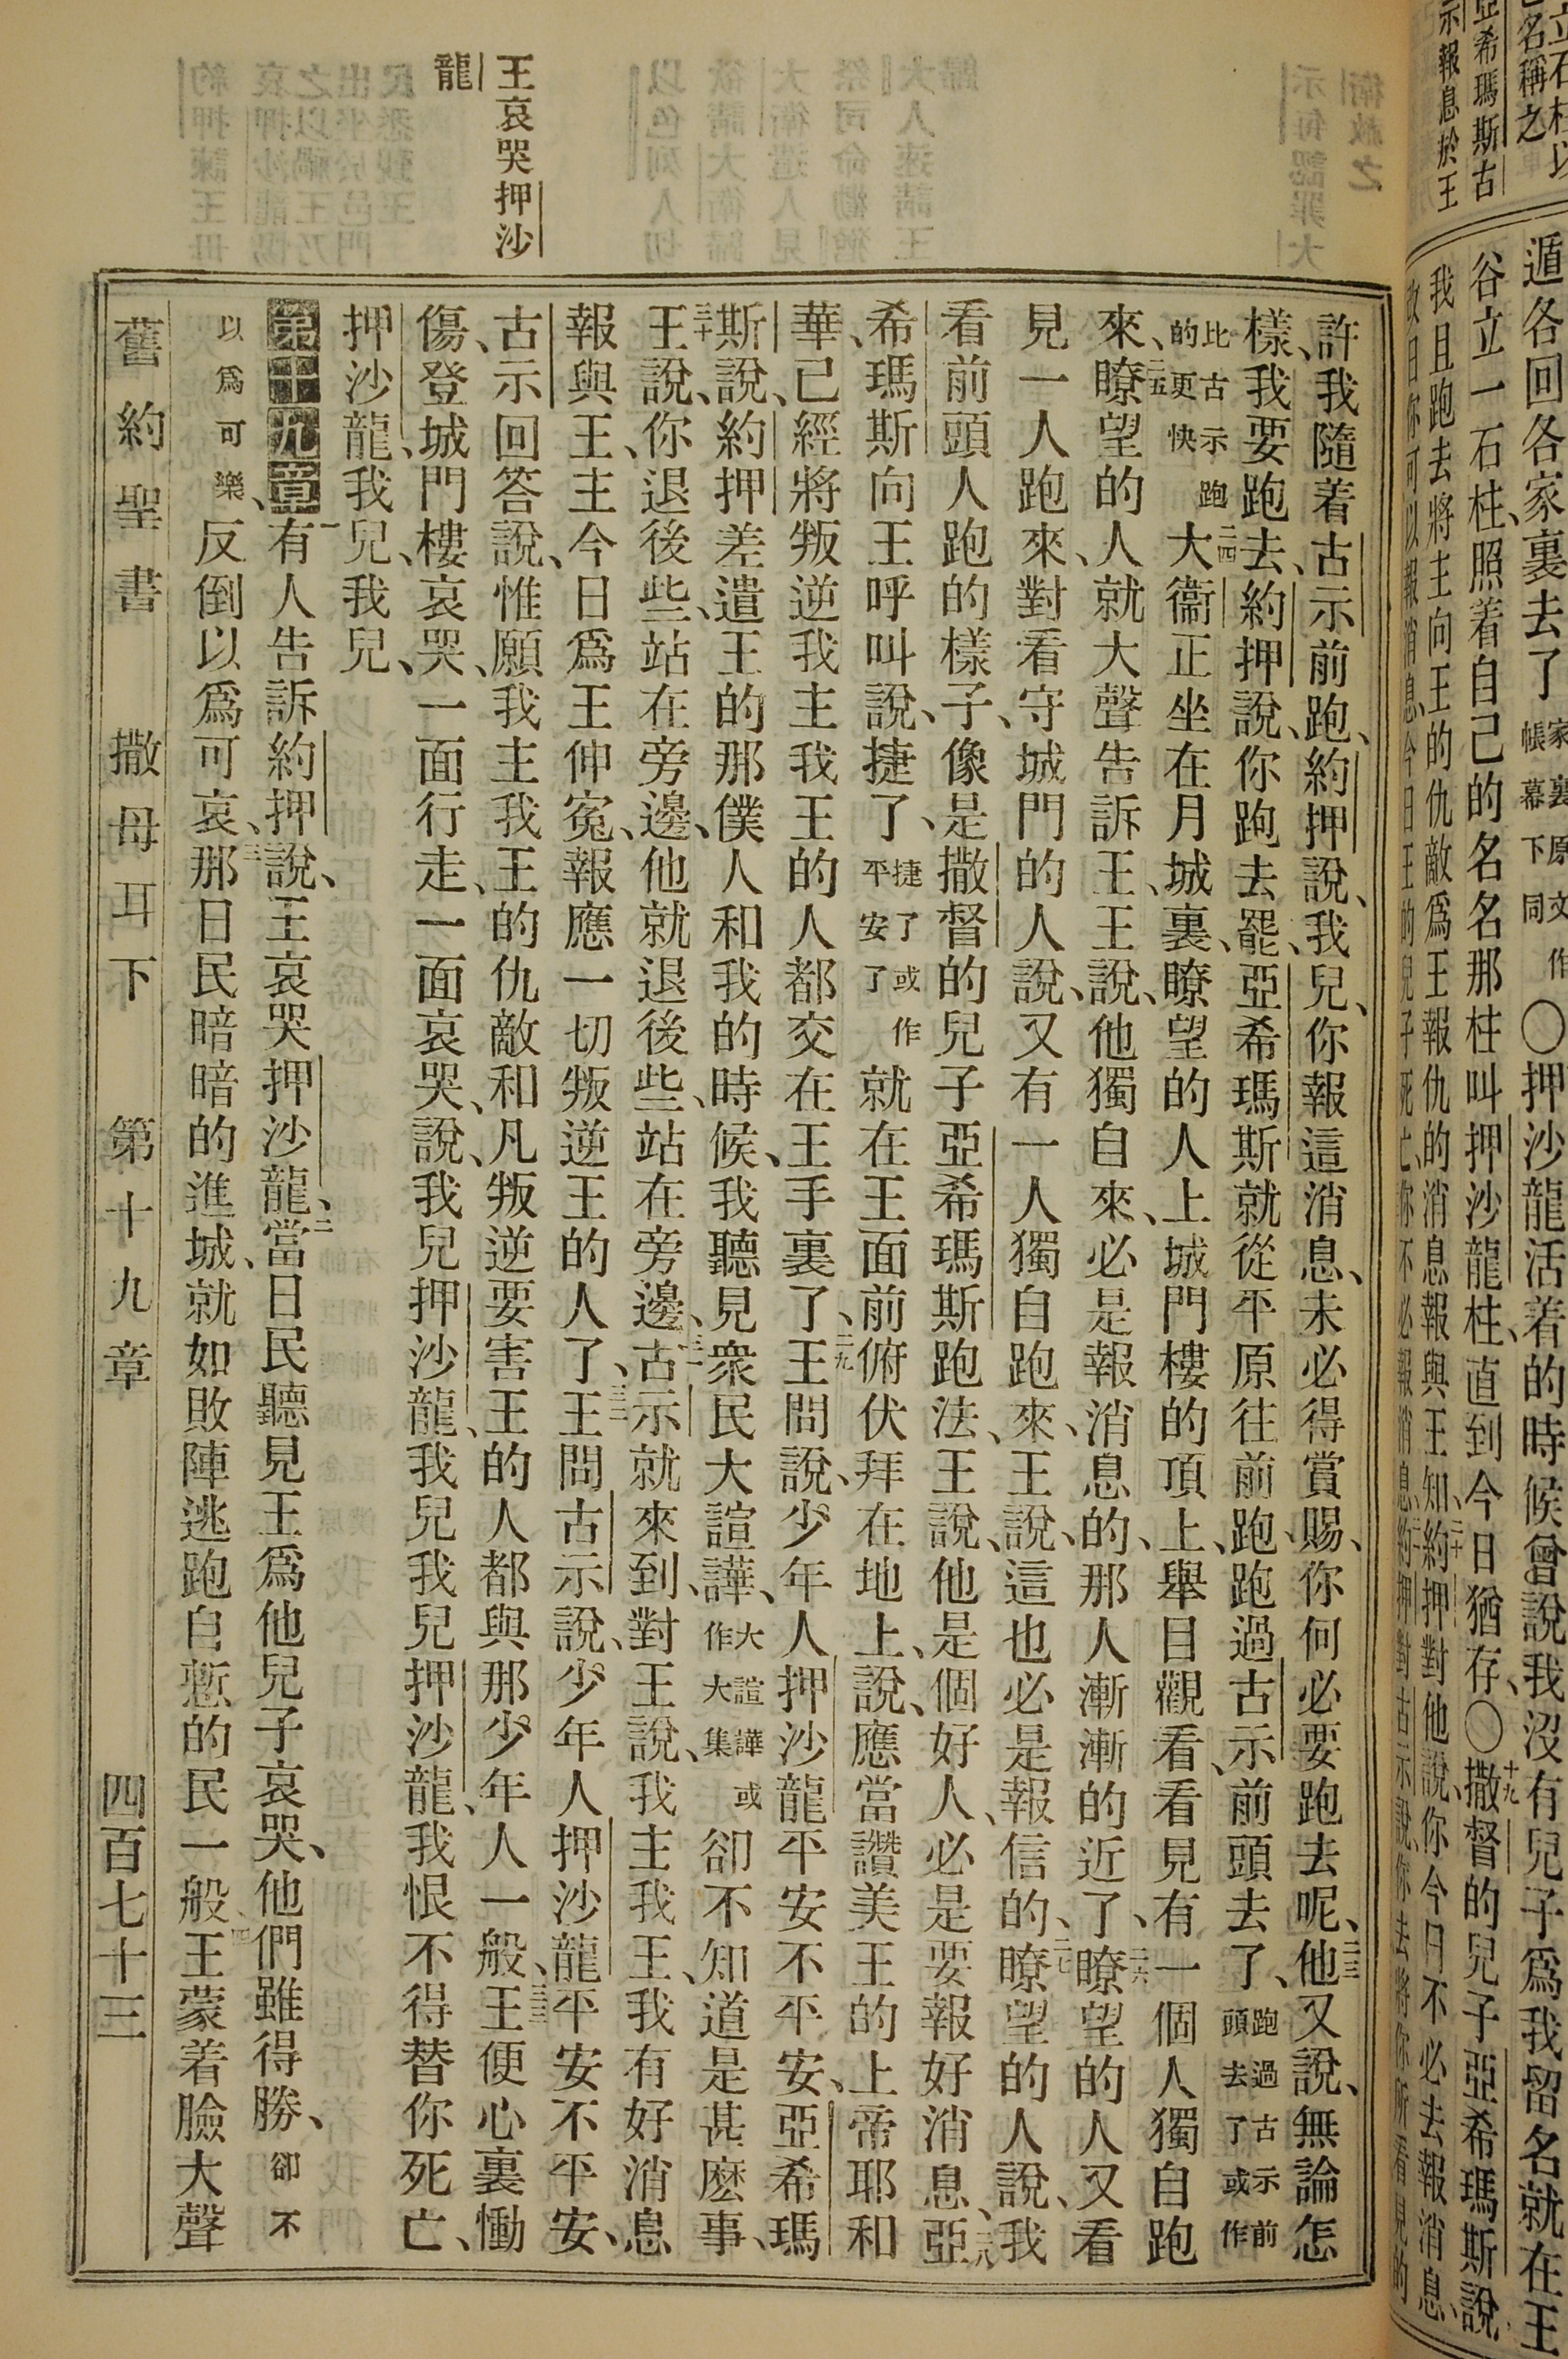 立石柱以
名稱之
亞希瑪斯古
示報息於王
遁各回各家裏去了家裏原文作帳幕下同〇押沙龍活着的時候曾說我沒有兒子爲我留名就在王
谷立一石柱、照着自己的名名那柱叫押沙龍柱、直到今日猶存、〇十九撒督的兒子亞希瑪斯說、
我且跑去將主向王的仇敵爲王報仇的消息報與王知、二十約押對他說、你今日不必去報消息、
改日你可以報消息、今日王的兒子死亡、你不必報消息、約押對古示說、你去將你所看見的
王哀哭押沙
龍
許我隨着古示前跑、約押說、我兒、你報這消息、未必得賞賜、你何必要跑去呢、二三他又說、無論怎
樣、我要跑去、約押說、你跑去罷、亞希瑪斯就從平原往前跑、跑過古示前頭去了、跑過古示前頭去了或作
比古示跑的更快二四大衞正坐在月城裏、瞭望的人上城門樓的頂上、舉目觀看、看見有一個人獨自跑
來、二五瞭望的人就大聲告訴王、王說、他獨自來、必是報消息的、那人漸漸的近了、二六瞭望的人又看
見一人跑來、對看守城門的人說、又有一人獨自跑來、王說、這也必是報信的、二七瞭望的人說、我
看前頭人跑的樣子、像是撒督的兒子亞希瑪斯跑法、王說、他是個好人、必是要報好消息、二八亞
希瑪斯向王呼叫說、捷了、捷了或作平安了就在王面前俯伏拜在地上、說、應當讚美王的上帝耶和
華、已經將叛逆我主我王的人都交在王手裏了、二九王問說、少年人押沙龍平安不平安、亞希瑪
斯說、約押差遣王的那僕人和我的時候、我聽見衆民大諠譁、大諠譁或作大集卻不知道是甚麽事、
三十王說、你退後些、站在旁邊、他就退後些、站在旁邊、三一古示就來到、對王說、我主我王、我有好消息
報與王、主今日爲王伸寃、報應一切叛逆王的人了、三二王問古示說、少年人押沙龍平安不平安、
古示回答說、惟願我主我王的仇敵和凡叛逆要害王的人都與那少年人一般、三三王便心裏慟
傷、登城門樓哀哭、一面行走、一面哀哭、說、我兒押沙龍、我兒我兒押沙龍、我恨不得替你死亡、
押沙龍、我兒、我兒、
第十九章一有人告訴約押說、王哀哭押沙龍、二當日民聽見王爲他兒子哀哭、他們雖得勝、卻不
以爲可樂、反倒以爲可哀、三那日民暗暗的進城、就如敗陣逃跑自慙的民一般、四王蒙着臉大聲
舊約聖書　撒母耳下　第十九章　四百七十三